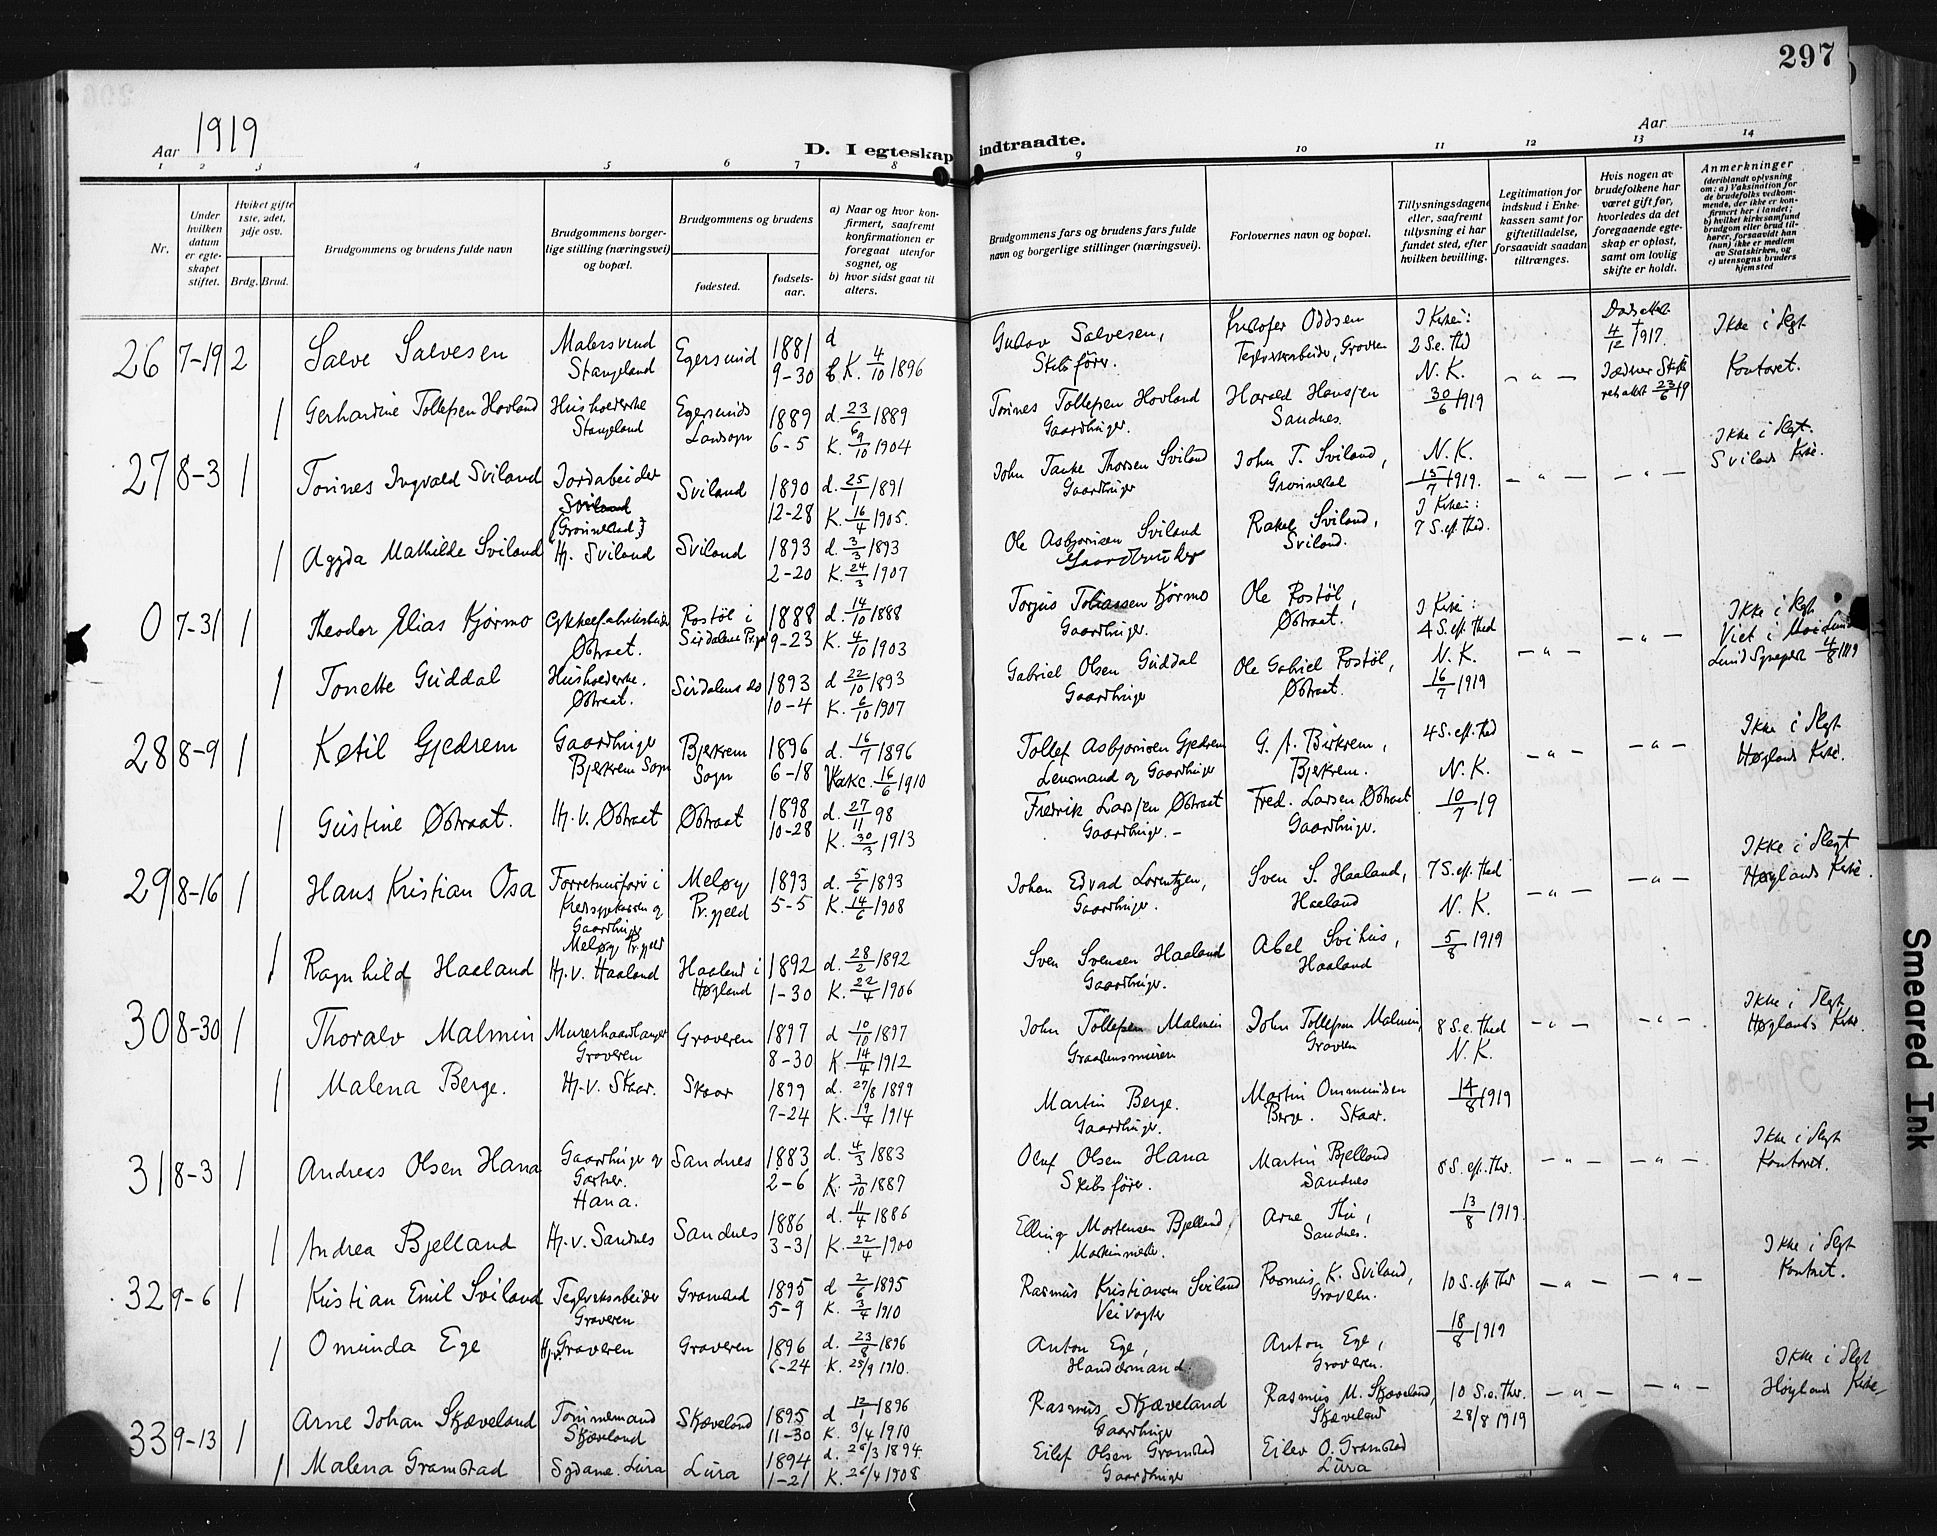 297
Aar 1919
D. I egteskap indtraadte.
Aar
1 2 3 4 5 6 7 8 9 10 11 12 13 14
Nr.
Under hvilken datum er egteskapet stiftet.
Hviket gifte 1ste, 2det, 3dje osv.
Brdg. Brud.
Brudgommens og brudens fulde navn
Brudgommens borgerlige stilling (næringsvei) og bopæl.
Brudgommens og brudens
fødested.
fødselsaar.
a) Naar og hvor konfirmert, saafremt konfirmationen er foregaat utenfor sognet, og
b) hvor sidst gaat til alters.
Brudgommens fars og brudens fars fulde navn og borgerlige stillinger (næringsvei).
Forlovernes navn og bopæl.
Tillysningsdagene eller, saafremt tillysning ei har fundet sted, efter hvilken bevilling.
Legitimation for indskud i Enkekassen samt for giftetilladelse, forsaavidt saadan tiltrænges.
Hvis nogen av brudefolkene har været gift før, hvorledes da det foregaaende egteskap er opløst, samt om lovlig skifte er holdt.
Anmerkninger (deriblandt oplysning om: a) Vaksination for de brudefolks vedkommende, der ikke er konfirmert her i landet; b) hvilket kirkesamfund brudgom eller brud tilhører, forsaavidt han (hun) ikke er medlem av Statskirken, og c) utensogns bruders hjemsted
26 7-19 2 Salve Salvesen Malersvend Stangeland Egersund 1881 9-30 d K. 4/10 1896 Gustav Salvesen, Skibsfører. Kristofer Oddsen Teglverksarbeider, Graveren 2 S.e. Thd N.K. 30/6 1919 4/12 1917. 23/6 19 Ikke i Slegt Kontoret.
1 Gerhardine Tollefsen Hovland Husholderske Stangeland Egersunds Landsogn 1889 6-5 d. 23/6 1889 K. 9/10 1904 Tønnes Tollefsen Hovland Gaardbruger. Harald Hansen Sandnes.
27 8-3 1 Tønnes Ingvald Sviland Jordarbeider Sviland Sviland 1890 12-28 d. 25/1 1891 K. 16/4 1905. John Tanke Thorsen Sviland Gaardbruger John T. Sviland, N.K. 15/7 1919. 7 S.ef.Thd. Ikke i Slegt. Svilands Kirke.
1 Aggda Mathilde Sviland Hj. Sviland Sviland 1893 2-20 d. 3/3 1893 K. 24/3 1907 Ole Asbjørnsen Sviland Gaardbruker Rakel Sviland, Sviland.
0 7-31 1 Theodor Elias Kjørmo Østraat. Rostøl i Sirdalens Pr.gj 1888 9-23 d. 14/10 1888 K. 4/10 1903 Torjus Tobiassen Kjørmo Gaardbruger. Ole Rostøl, Østraat. 4 S.ef. Thd N.K. 16/7 1919 Ikke i Slegt 4/8 1919
1 Tonette Guddal Husholderske. Østraat. Sirdalens do 1893 10-4 d 22/10 1893 K. 6/10 1907 Gabriel Olsen Guddal Gaardbruger Ole Gabriel Rostøl, Østraat.
28 8-9 1 Ketil Gjedrem Gaardbruger Bjerkrem Sogn Bjerkrem Sogn 1896 6-18 d. 16/7 1896 16/6 1910 Tollef Asbjørnsen Gjedrem Lensmand og Gaardbruger G. A. Birkrem, Bjerkrem. 4 S.ef. Thd N.K. 10/7 19 Ikke i Slegt Høylands Kirke.
1 Gustine Østraat. Hj.v. Østraat Østraat 1898 10-28 d. 27/11 98 K. 30/3 1913 Fredrik Larsen Østraat Gaardbruger. – Fred. Larsen Østraat Gaardbruger.
29 8-16 1 Hans Kristian Osa Forretningsfører i Kredsygekassen og Gaardbruger Meløy Pr.gjeld Meløy Pr.gjeld 1893 5-5 d. 5/6 1893 K. 14/6 1908 Johan Edvad Lorentzen, Gaardbruger. Sven S. Haaland, Haaland 7 S.ef. Thd N.K. 5/8 1919 Ikke i Slegt Høylands Kirke.
1 Ragnhild Haaland Hj.v. Haaland Haaland i Høyland 1892 1-30 d. 28/2 1892 K. 22/4 1906 Sven Svensen Haaland Gaardbruger. Abel Svihus, Haaland
30 8-30 1 Thoralv Malmin Murerhaandlanger Graveren Graveren 1897 8-30 d 10/10 1897 K. 14/4 1912 John Tollefsen Malmin John Tollefsen Malmin, Graveren 8 S.e. Thd N.K. 14/8 1919 Ikke i Slegt Høylands Kirke.
1 Malena Berge. Hj.v. Skaar. Skaar 1899 7-24 d. 27/8 1899 K. 19/4 1914 Martin Berge. Gaardbruger. Martin Ommundsen Berge. Skaar.
31 8-3 1 Andreas Olsen Hana Gaardbruger og Gartner. Hana. Sandnes 1883 2-6 d. 4/3 1883 K. 3/10 1887 Oluf Olsen Hana Skibsfører. Martin Bjelland Sandnes 8 S.ef. Thr. 13/8 1919. Ikke i Slegt Kontoret.
1 Andrea Bjelland Hj.v. Sandnes Sandnes 1886 3-31 d. 11/4 1886 K. 22/4 1900 Elling Mortensen Bjelland, Maskinmester. Arne Thu, Sandnes.
32 9-6 1 Kristian Emil Sviland Teglverksarbeider Graveren Gramstad 1895 5-9 d 2/6 1895 K. 3/4 1910 Rasmus Kristiansen Sviland Veivogter Rasmus K. Sviland, Graveren. 10 S.ef Thr 18/8 1919 Ikke i Slegt Kontoret.
1 Omunda Ege Hj.v. Graveren Graveren 1896 6-24 d. 23/8 1896 K. 25/9 1910. Anton Ege, Handelsmand. Anton Ege, Graveren.
33 9-13 1 Arne Johan Skjæveland Tømmermand Skjæveland Skjæveland 1895 11-30 d 12/1 1896 K. 3/4 1910 Rasmus Skjæveland Gaardbruger Rasmus M. Skjæveland, Skjæveland 10 S.e. Thr. 28/8 1919 Ikke i Slegt Høylands Kirke
1 Malena Gramstad Sydame. Lura Lura 1894 1-21 d. 26/3 1894. K. 26/4 1908 Eilef Olsen Gramstad Gaardbruger Eilev O. Gramstad Lura
Smeared Ink